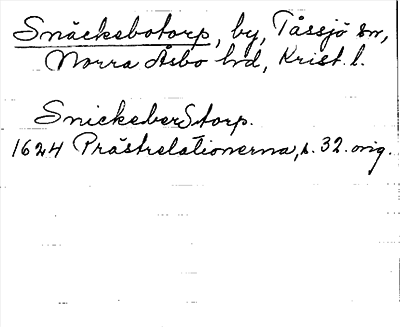 Snäckebotorp, by, Tåssjö sn,
Norra Åsbo hd, Krist. l.
SnickeberStorp.
1624 Prästrelationerna, s. 32. orig.